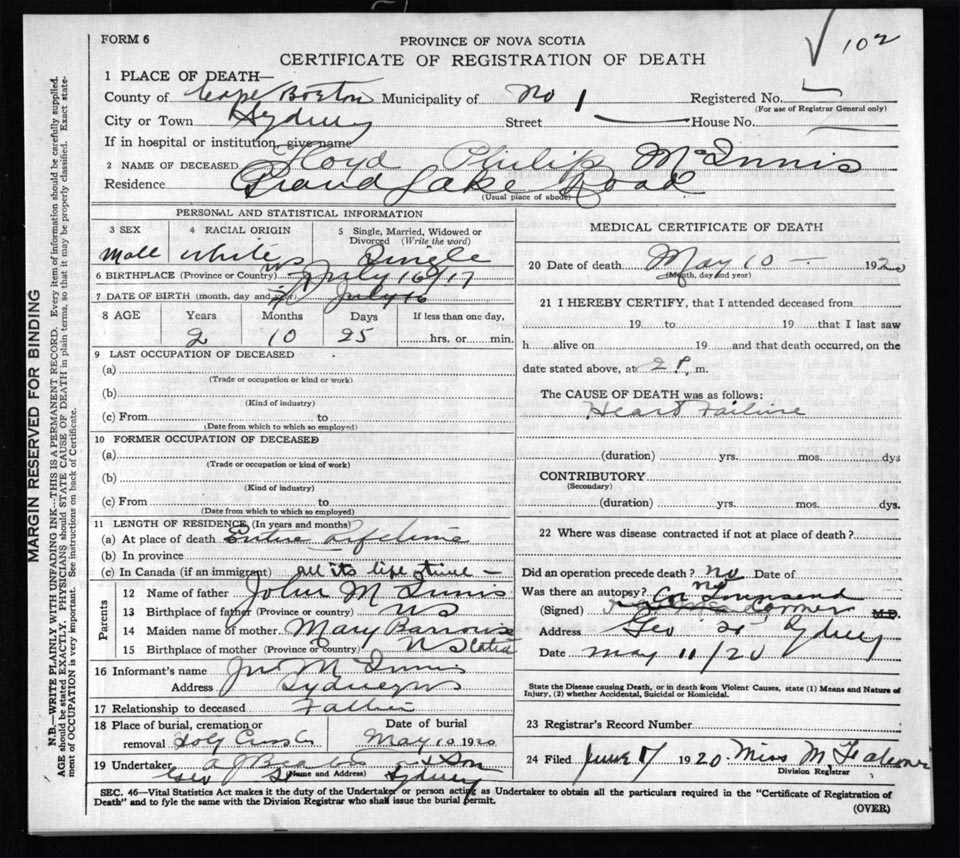 FORM 6
PROVINCE OF NOVA SCOTIA
102
CERTIFICATE OF REGISTRATION OF DEATH
1 PLACE OF DEATH—
County of Cape Breton Municipality of No 1 Registered No.
(For use of Registrar General only)
City or Town Sydney Street House No.
If in hospital or institution, give name
2 NAME OF DECEASED Floyd Philip McInnis
Residence Grand Lake Road
(Usual place of abode)
PERSONAL AND STATISTICAL INFORMATION
3 SEX 4 RACIAL ORIGIN 5 Single, Married, Widowed or Divorced (Write the word)
Male white Single
6 BIRTHPLACE (Province or Country) NS July 16/17
7 DATE OF BIRTH (month, day and year) July 16
8 AGE Years Months Days If less than one day,
2 10 25 hrs. or min.
9 LAST OCCUPATION OF DECEASED
(a)
(Trade or occupation or kind or work)
(b)
(Kind of industry)
(c) From to
(Date from which to which so employed)
10 FORMER OCCUPATION OF DECEASED
(a)
(Trade or occupation or kind of work)
(b)
(Kind of industry)
(c) From to
(Date from which to which so employed)
11 LENGTH OF RESIDENCE (In years and months)
(a) At place of death Entire Lifetime
(b) In province
(c) In Canada (if an immigrant) all its life time —
Parents
12 Name of father John McInnis
13 Birthplace of father (Province or country) NS
14 Maiden name of mother Mary
15 Birthplace of mother (Province or country) N Scotia
16 Informant's name Jn McInnis
Address Sydney NS
17 Relationship to deceased Father
18 Place of burial, cremation or removal Holy Cross Date of burial May 10 1920
19 Undertaker & Son
(Name and Address) Geo St Sydney
MEDICAL CERTIFICATE OF DEATH
20 Date of death May 10 — 1920
(Month, day and year)
21 I HEREBY CERTIFY, that I attended deceased from
19 to 19 that I last saw
h alive on 19 and that death occurred, on the
date stated above, at 2 P. m.
The CAUSE OF DEATH was as follows:
Heart Failure
(duration) yrs. mos. dys
CONTRIBUTORY
(Secondary)
(duration) yrs. mos. dys.
22 Where was disease contracted if not at place of death?
Did an operation precede death? no Date of
Was there an autopsy? no
(Signed) Townsend Coroner M.D.
Address Geo St Sydney
Date May 11/20
State the Disease causing Death, or in death from Violent Causes, state (1) Means and Nature of Injury, (2) whether Accidental, Suicidal or Homicidal.
23 Registrar's Record Number
24 Filed June 17 1920 Miss M.
Division Registrar
SEC. 46—Vital Statistics Act makes it the duty of the Undertaker or person acting as Undertaker to obtain all the particulars required in the "Certificate of Registration of
Death" and to fyle the same with the Division Registrar who shall issue the burial permit.
(OVER)
MARGIN RESERVED FOR BINDING
N.B.—WRITE PLAINLY WITH UNFADING INK—THIS IS A PERMANENT RECORD. Every item of information should be carefully supplied.
AGE should be stated EXACTLY. PHYSICIANS should STATE CAUSE OF DEATH in plain terms, so that it may be properly classified. Exact state-
ment of OCCUPATION is very important. See instructions on back of Certificate.